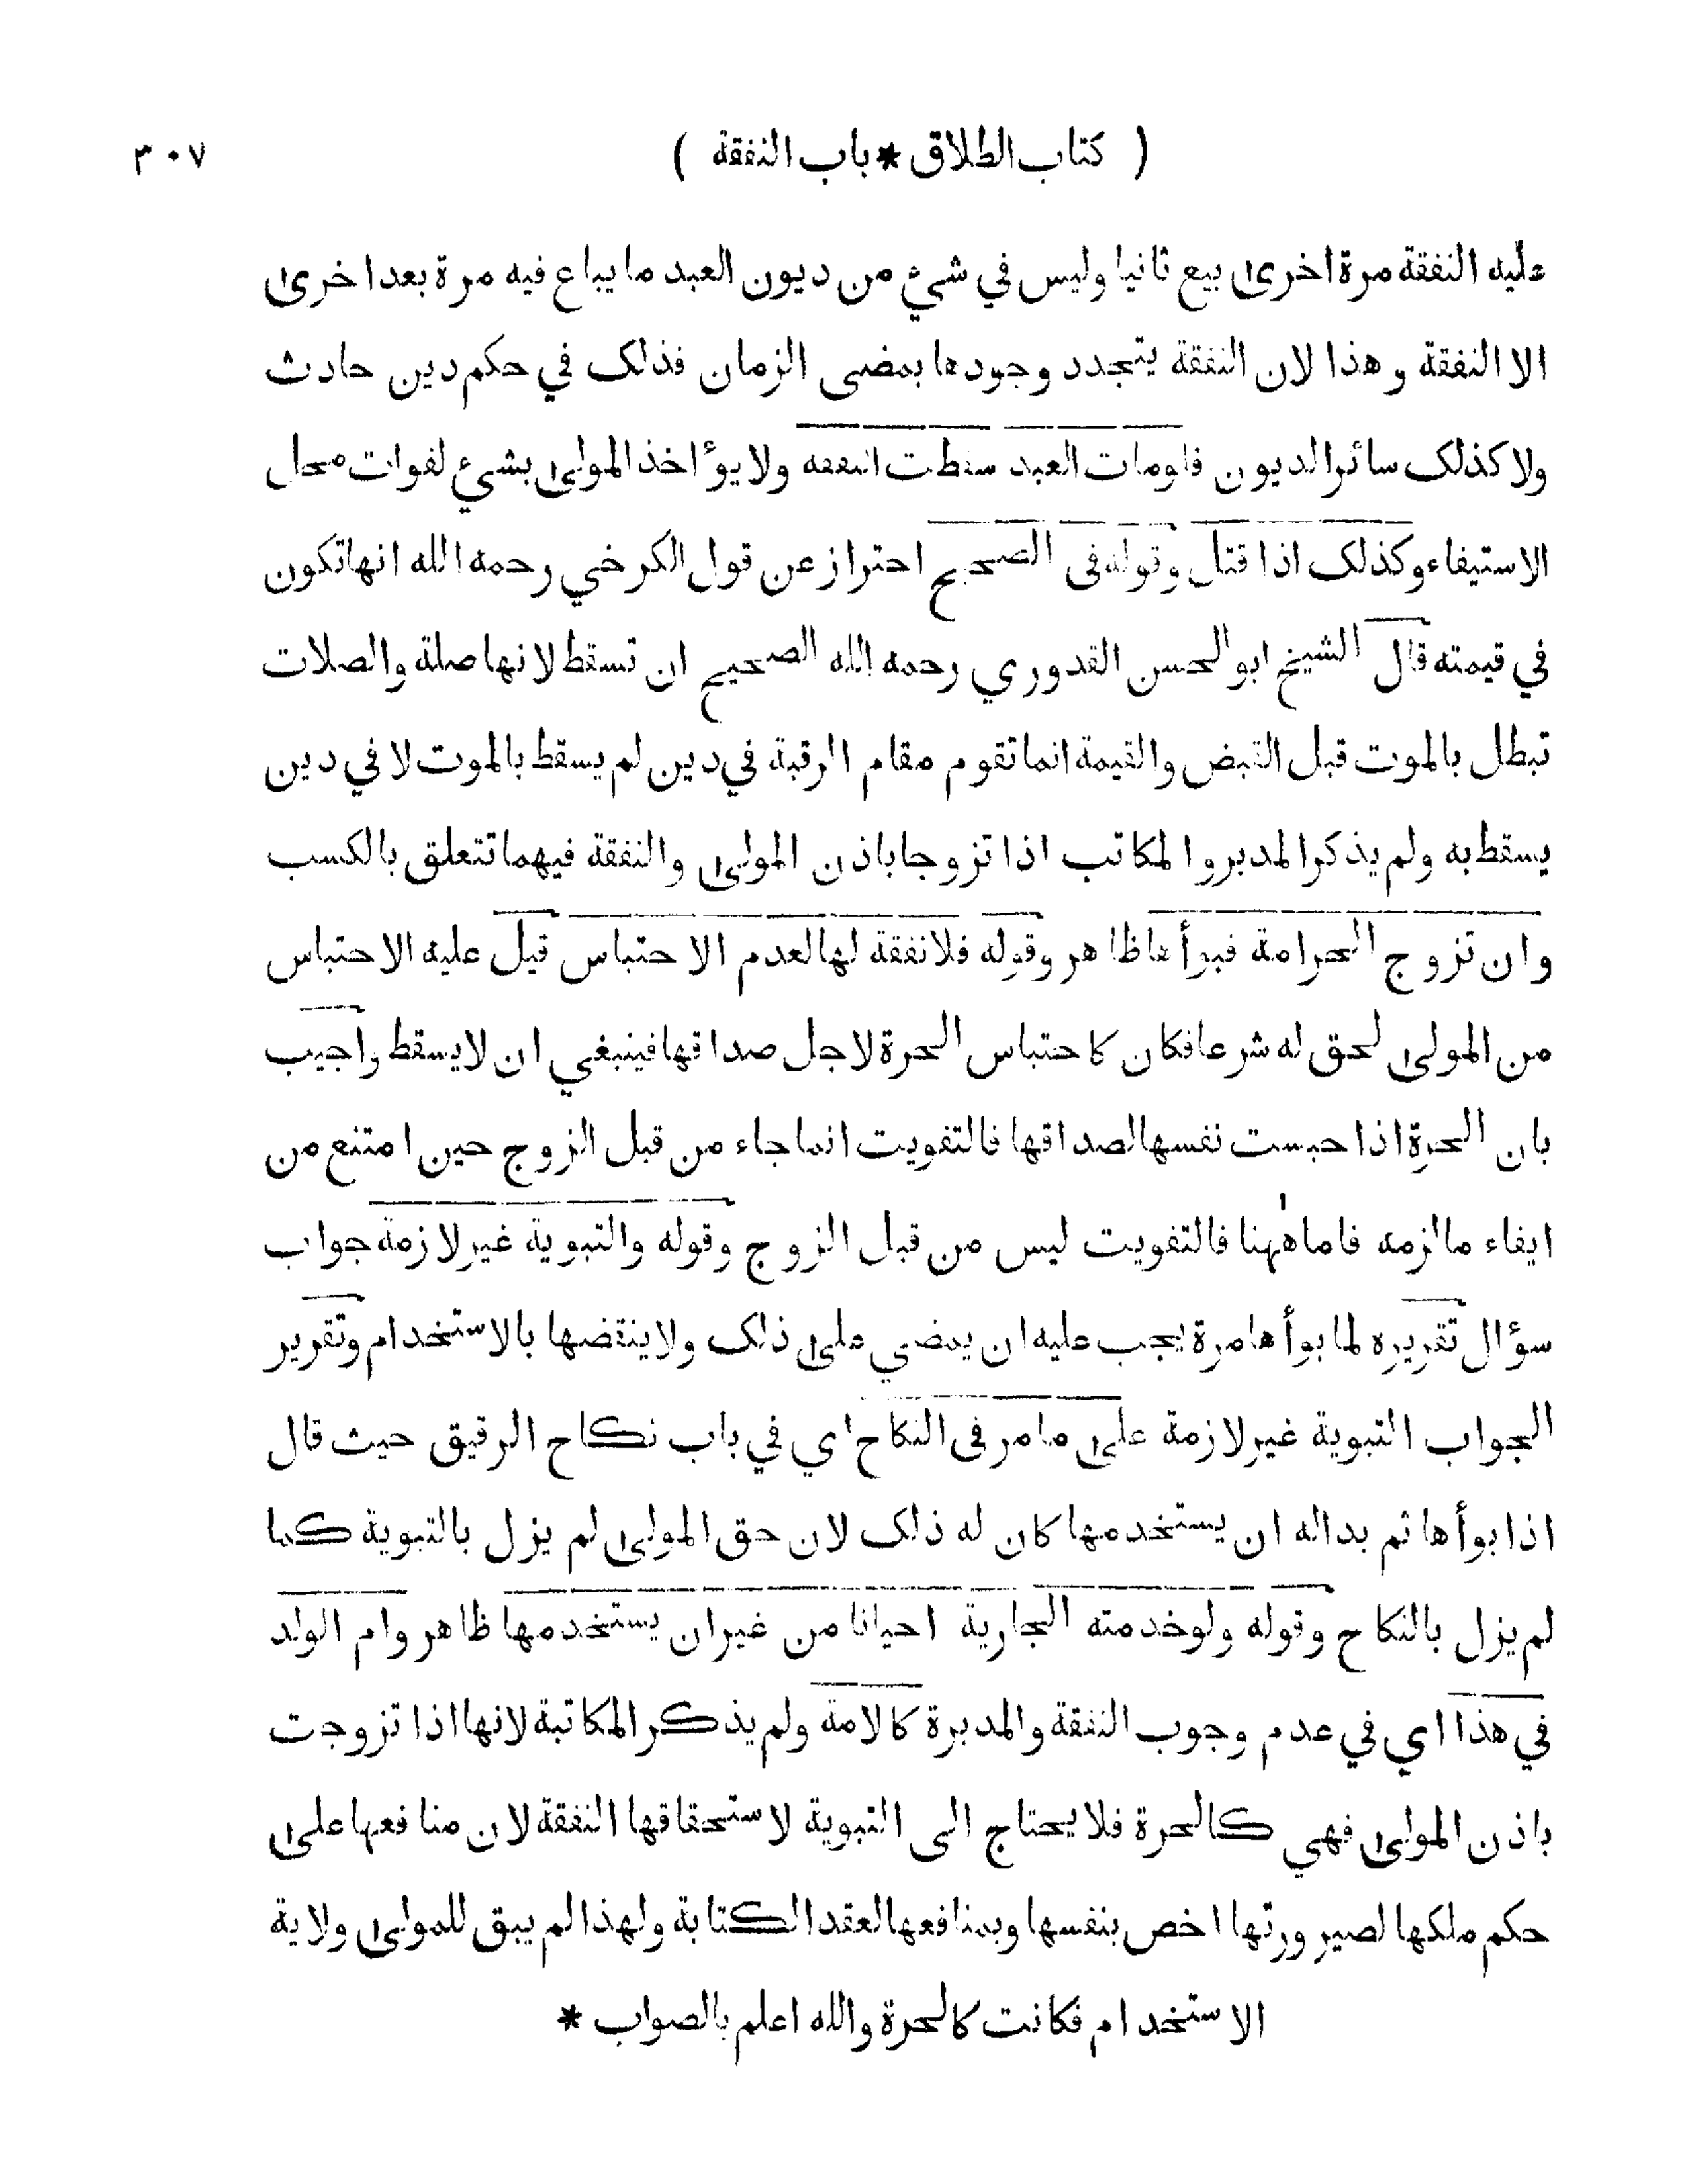 ( كتاب الطلاق * باب النفقة ) ٣٠٧
عليه النفقة مرة اخرى بيع ثانيا وليس في شيء من ديون العبد ما يباع فيه مرة بعد اخرى
الا النفقة وهذا لان النفقة يتجدد وجودها بمضى الزمان فذلك في حكم دين حادث
ولا كذلك سائر الديون فلومات العبد سقطت النفقة ولا يؤاخذ المولى بشيء لفوات محل
الاستيفاء وكذلك اذا قتل وقوله فى الصحيح احتراز عن قول الكرخي رحمه الله انها تكون
في قيمته قال الشيخ ابو الحسن القدوري رحمه الله الصحيح ان تسقط لانها صلة والصلات
تبطل بالموت قبل القبض والقيمة انما تقوم مقام الرقبة في دين لم يسقط بالموت لا في دين
يسقط به ولم يذكر المدبر والمكاتب اذا تزوجا باذن المولى والنفقة فيهما تتعلق بالكسب
وان تزوج الحر امة فبوأها ظاهر وقوله فلا نفقة لها لعدم الاحتباس قيل عليه الاحتباس
من المولى لحق له شرعا فكان كاحتباس الحرة لاجل صداقها فينبغي ان لا يسقط واجيب
بان الحرة اذا حبست نفسها لصداقها فالتفويت انما جاء من قبل الزوج حين امتنع من
ايفاء ما لزمه فاما ههنا فالتفويت ليس من قبل الزوج وقوله والتبوية غير لازمة جواب
سؤال تقريره لما بوأها مرة يجب عليه ان يمضي على ذلك ولا ينتقضها بالاستخدام وتقرير
الجواب التبوية غير لازمة على ما مر فى النكاح اي في باب نكاح الرقيق حيث قال
اذا بوأها ثم بدا له ان يستخدمها كان له ذلك لان حق المولى لم يزل بالتبوية كما
لم يزل بالنكاح وقوله ولو خدمته الجارية احيانا من غير ان يستخدمها ظاهر وام الولد
في هذا اي في عدم وجوب النفقة والمدبرة كالامة ولم يذكر المكاتبة لانها اذا تزوجت
باذن المولى فهي كالحرة فلا يحتاج الى التبوية لاستحقاقها النفقة لان منافعها على
حكم ملكها لصيرورتها اخص بنفسها وبمنافعها لعقد الكتابة ولهذا لم يبق للمولى ولاية
الاستخدام فكانت كالحرة والله اعلم بالصواب *